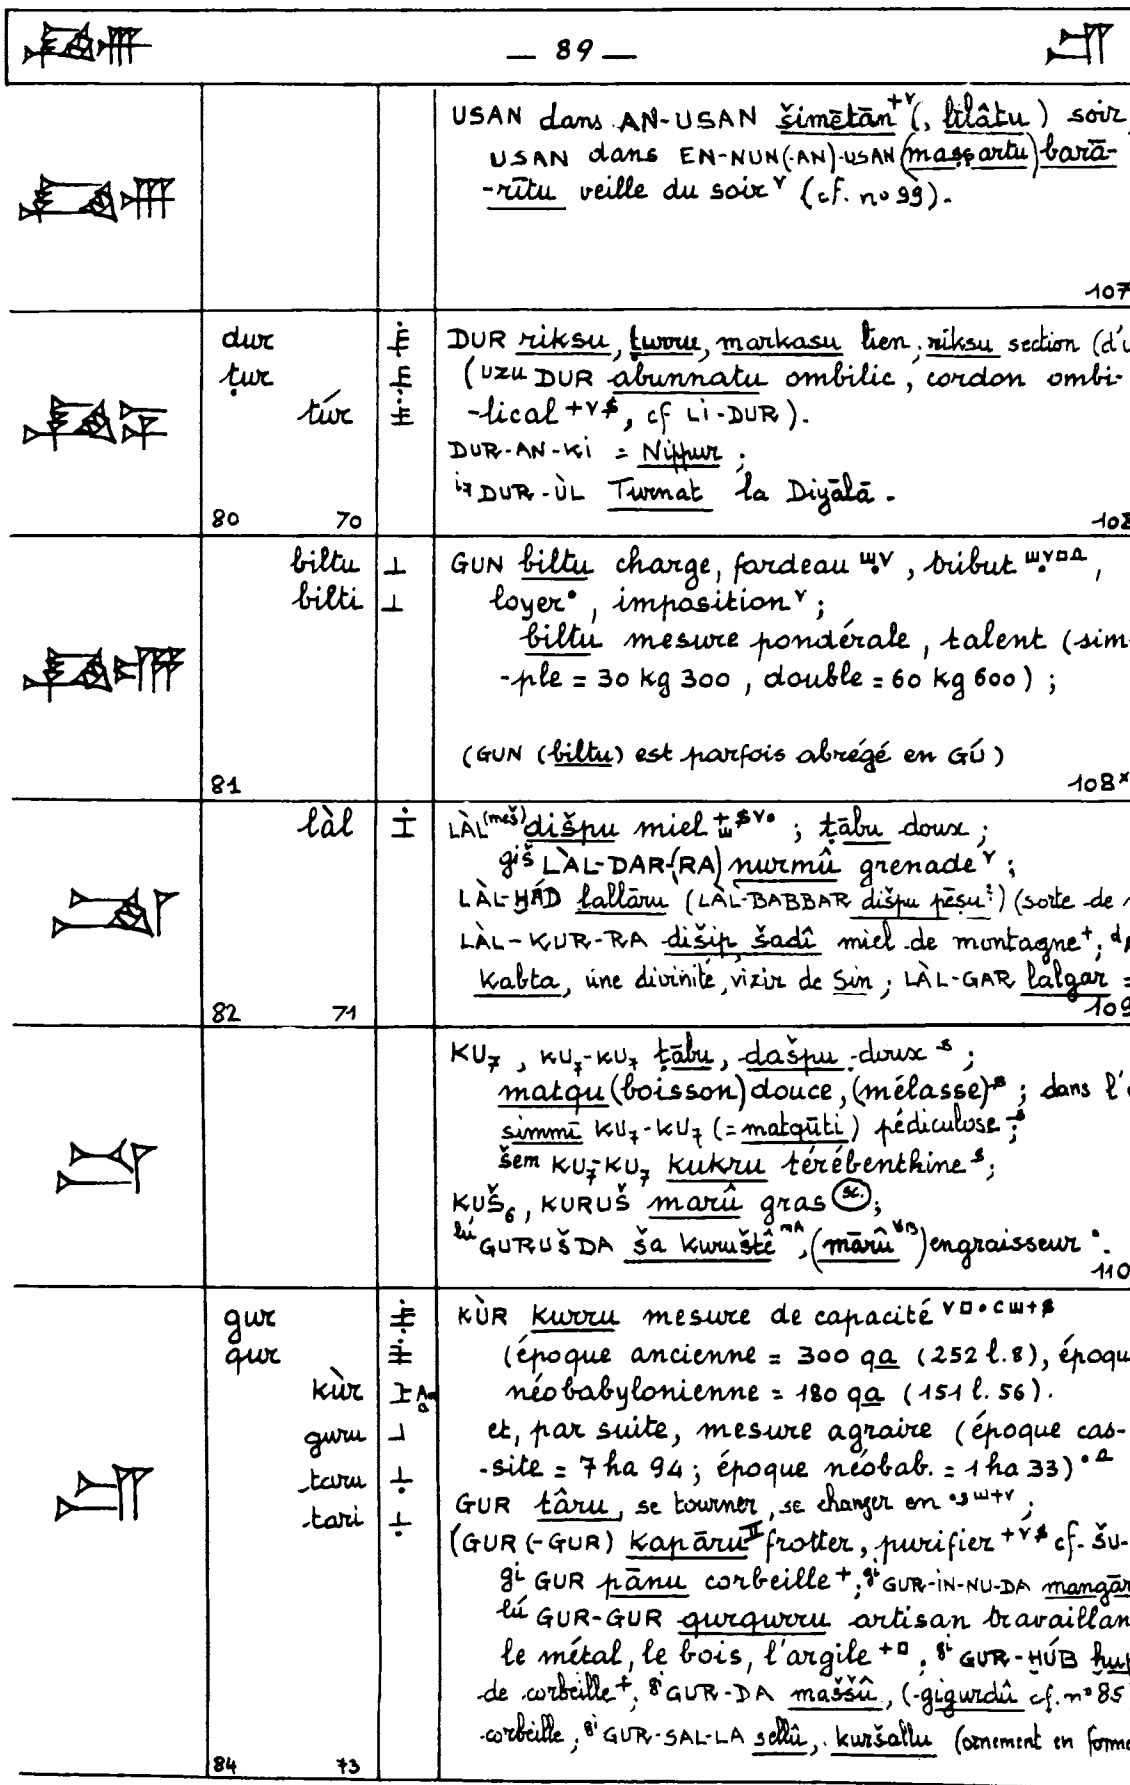 — 89 —
USAN dans AN-USAN šimētān⁺ᵛ (, lilâtu) soir
USAN dans EN-NUN(-AN)-USAN (maṣṣartu) barā-
-rītu veille du soir ᵛ (cf. no 99).
107
dur
ṭur
túr
DUR riksu, ṭurru, markasu lien; riksu section (d'u
(uzu DUR abunnatu ombilic, cordon ombi-
-lical ⁺ᵛ$, cf LI-DUR).
DUR-AN-KI = Nippur ;
í₇ DUR-ÙL Turnat la Diyālā.
80 70 108
biltu ⊥
bilti ⊥
GUN biltu charge, fardeau, tribut,
loyer•, imposition ᵛ ;
biltu mesure pondérale, talent (sim-
-ple = 30 kg 300, double = 60 kg 600) ;
(GUN (biltu) est parfois abrégé en GÚ)
81 108ˣ
làl
LÀL⁽ᵐᵉš⁾ dišpu miel ; ṭābu doux ;
giš LÀL-DAR-(RA) nurmû grenade ᵛ ;
LÀL-ḪÁD lallāru (LÀL-BABBAR dišpu pēṣu?) (sorte de
LÀL-KUR-RA dišip šadî miel de montagne⁺;
Kabta, une divinité, vizir de Sin ; LÀL-GAR lalgar =
82 71 109
KU₇, KU₇-KU₇ ṭābu, dašpu doux ˢ ;
matqu (boisson) douce, (mélasse) ; dans l'
simmī KU₇-KU₇ (= matqūti) pédiculose ;
šem KU₇-KU₇ kukru térébenthine ˢ ;
KUŠ₆, KURUŠ marû gras (sc.) ;
lú GURUŠDA ša kuruštê ᵐᴬ, (mārû ᴺᴮ) engraisseur •.
110
gur
qur
kùr
guru ⊥
taru
tari
KÙR kurru mesure de capacité
(époque ancienne = 300 qa (252 l. 8), époque
néobabylonienne = 180 qa (151 l. 56).
et, par suite, mesure agraire (époque cas-
-site = 7 ha 94 ; époque néobab. = 1 ha 33)
GUR târu, se tourner, se changer en ;
(GUR (-GUR) kapāru II frotter, purifier ⁺ᵛ$ cf. ŠU-
gi GUR pānu corbeille ⁺; gi GUR-IN-NU-DA mangār
lú GUR-GUR qurqurru artisan travaillan
le métal, le bois, l'argile ; gi GUR-ḪÚB ḫup
de corbeille ⁺; gi GUR-DA maššû, (gigurdû cf. n° 85
corbeille ; gi GUR-SAL-LA sellû, kuršallu (ornement en forme
84 73